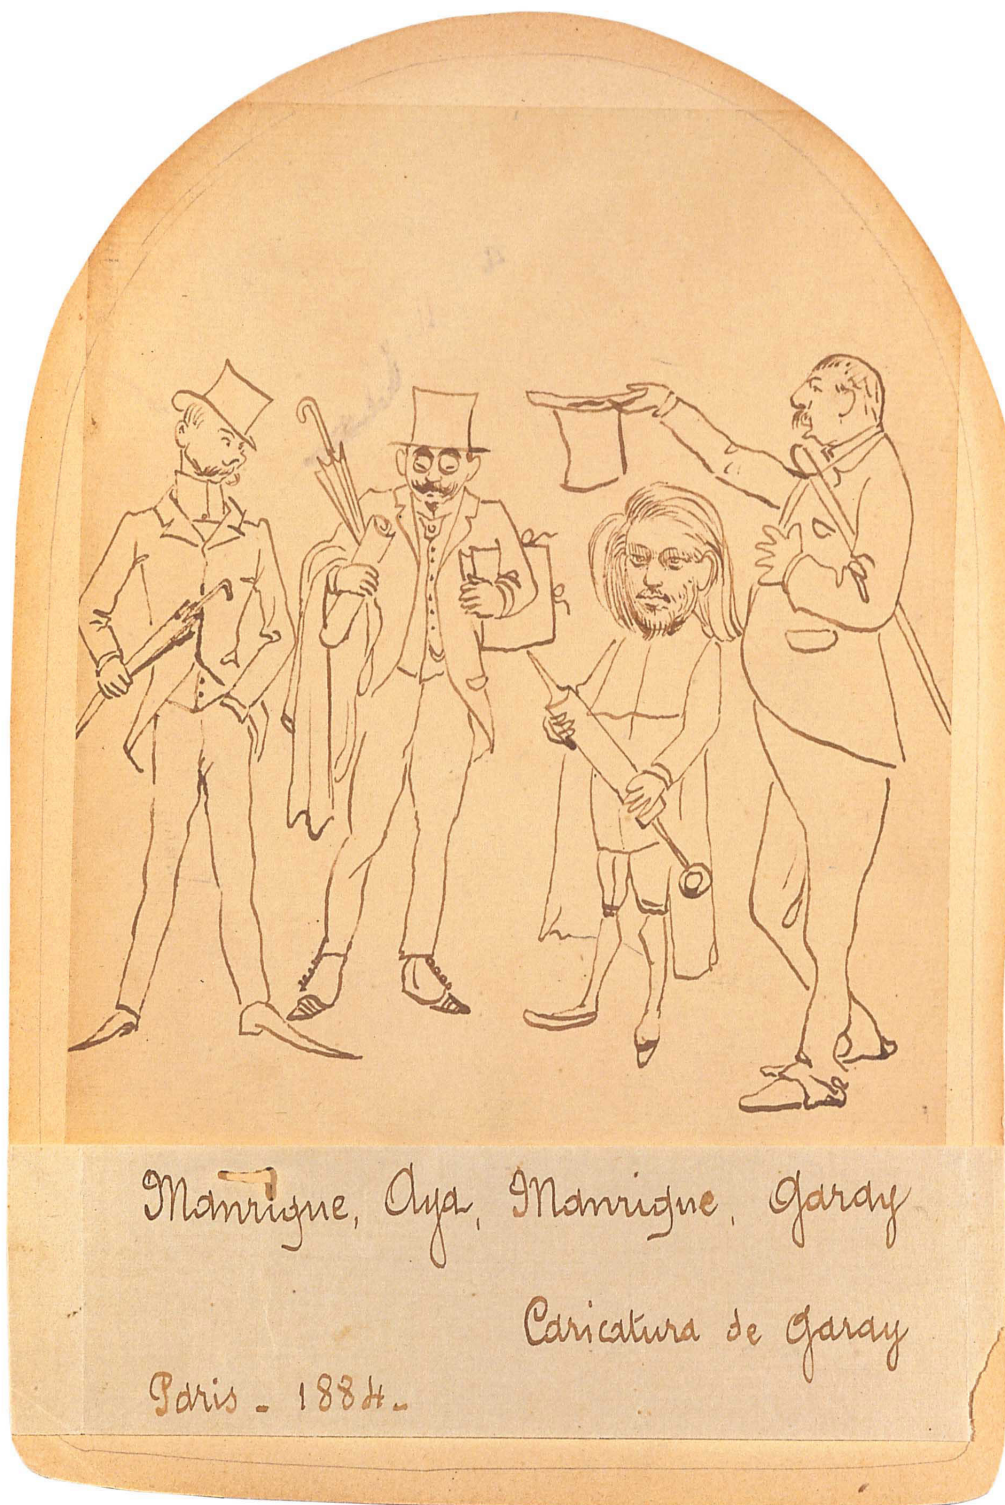 Manrique, Aya, Manrique, Garay
Caricatura de Garay
Paris - 1884 -